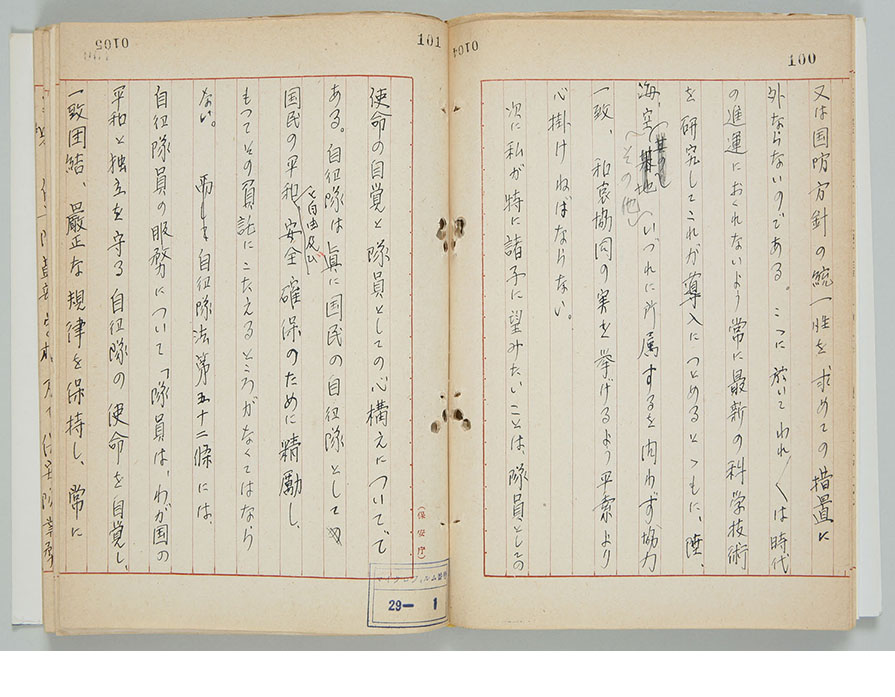 100
又は国防方針の統一性を求めての措置に
外ならないのである。こゝに於いてわれ／＼は時代
の進運におくれないよう常に最新の科学技術
を研究してこれが導入につとめるとゝもに、陸、
海、空、いづれに所属するを問わず協力
その他
一致、和衷協同の実を挙げるよう平素より
心掛けねばならない。
次に私が特に諸子に望みたいことは、隊員としての
0104
101
使命の自覚と隊員としての心構えについてで
ある。自衛隊は眞に国民の自衛隊として
国民の平和、安全確保のために精励し、
もつてその負託にこたえるところがなくてはなら
ない。而して自衛隊法第五十二條には、
自衛隊員の服務について「隊員は、わが国の
平和と独立を守る自衛隊の使命を自覚し、
一致団結、嚴正な規律を保持し、常に
0105
(保安庁)
マイクロフィルム
29— 1